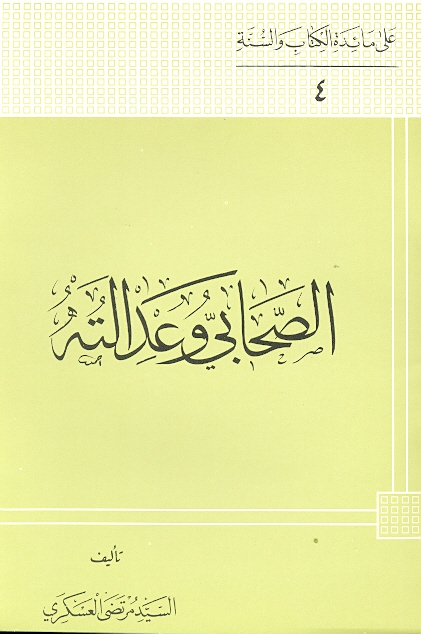 على مائدة الكتاب والسنة
٤
الصحابي وعدالته
تأليف
السيد مرتضى العسكري